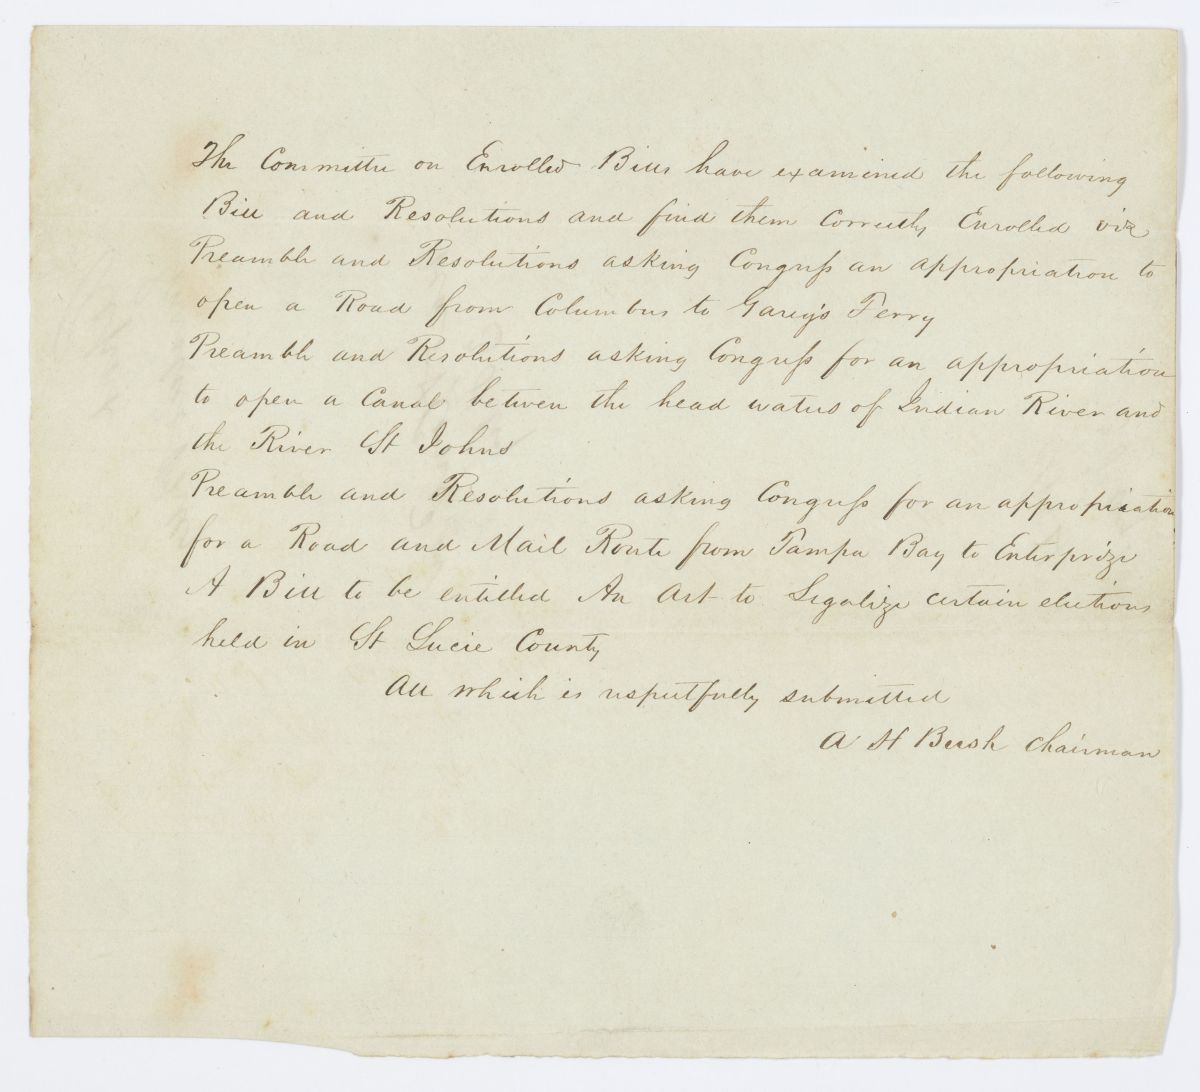 The Committee on Enrolled Bills have examined the following
Bill and Resolutions and find them Correctly Enrolled viz
Preamble and Resolutions asking Congress an appropriation to
open a Road from Columbus to Garey's Ferry
Preamble and Resolutions asking Congress for an appropriation
to open a Canal between the head waters of Indian River and
the River St Johns
Preamble and Resolutions asking Congress for an appropriation
for a Road and Mail Route from Tampa Bay to Enterprize
A Bill to be entitled An Act to Legalize certain elections
held in St Lucie County
All which is respectfully submitted
A H Bush Chairman